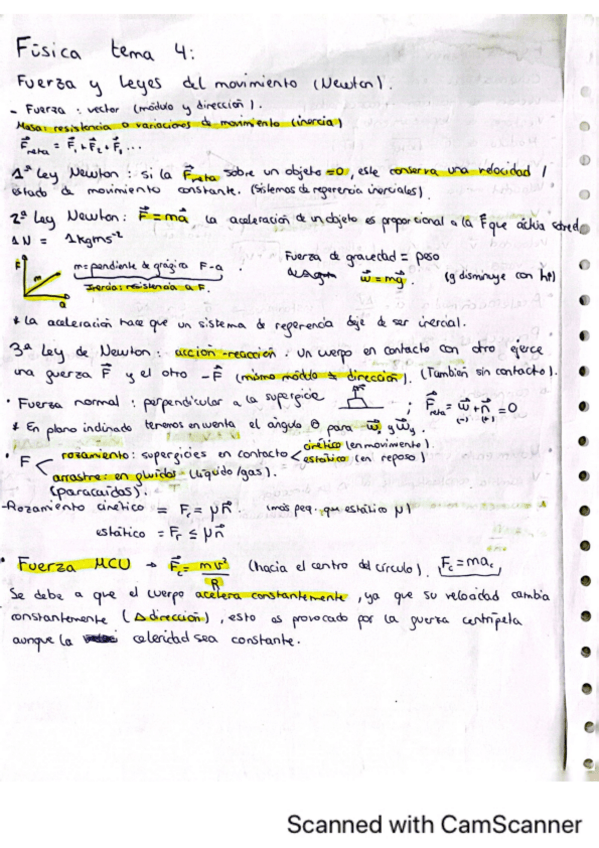 Física tema 4:
Fuerza y Leyes del movimiento (Newton).
- Fuerza : vector (módulo y dirección).
Masa: resistencia a variaciones de movimiento (inercia)
F⃗neta = F⃗1 + F⃗2 + F⃗3 ...
1ª Ley Newton : si la F⃗neta sobre un objeto =0, este conserva una velocidad /
estado de movimiento constante. (sistemas de referencia inerciales).
2ª Ley Newton: F⃗=ma⃗ La aceleración de un objeto es proporcional a la F que actúa sobre
1N = 1kgms⁻²
F
m
a
m=pendiente de gráfica F-a
Inercia: resistencia a F.
Fuerza de gravedad = peso
w⃗=mg⃗. (g disminuye con h↑)
* La aceleración hace que un sistema de referencia deje de ser inercial.
3ª Ley de Newton: acción-reacción : un cuerpo en contacto con otro ejerce
una fuerza F⃗ y el otro -F⃗ (mismo módulo y dirección). (También sin contacto).
• Fuerza normal : perpendicular a la superficie ; F⃗neta = w⃗ + n⃗ =0
(-) (+)
* En plano inclinado tenemos en cuenta el ángulo θ para w⃗x y w⃗y.
• F
rozamiento: superficies en contacto
cinético (en movimiento).
estático (en reposo)
arrastre: en fluidos (líquido/gas).
(paracaídas).
-Rozamiento cinético = Fr = μn⃗. (más peq. que estático μ)
estático = Fr ≤ μn⃗
• Fuerza MCU → F⃗c = mv²/R (hacia el centro del círculo). Fc=mac
Se debe a que el cuerpo acelera constantemente, ya que su velocidad cambia
constantemente (Δ dirección), esto es provocado por la fuerza centrípeta
aunque la celeridad sea constante.
Scanned with CamScanner